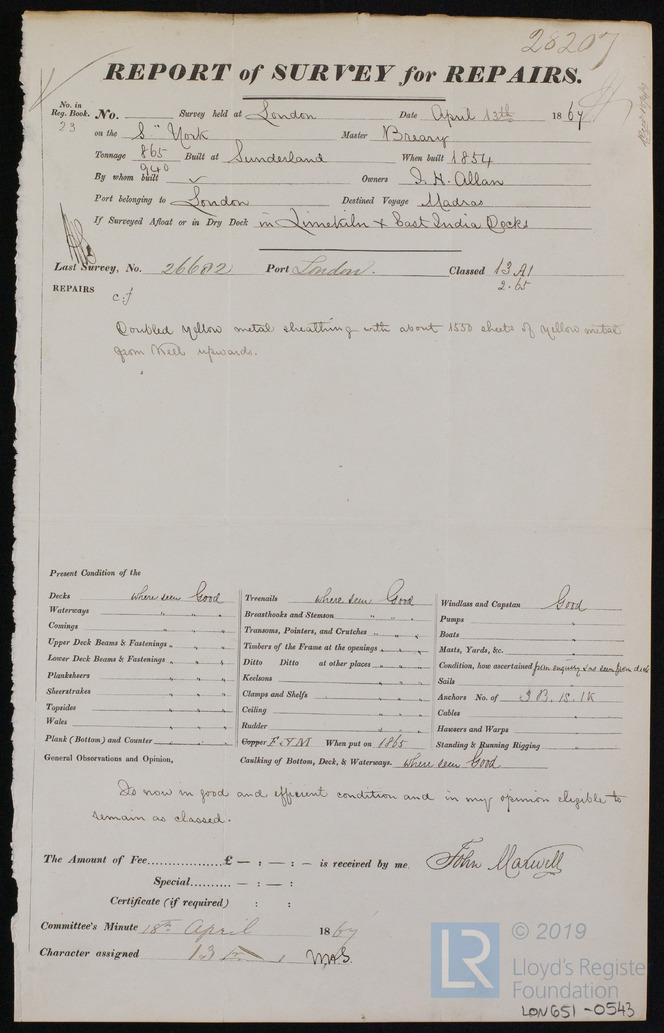 28207
REPORT of SURVEY for REPAIRS.
No. in Reg. Book. No. Survey held at London Date April 13th 1867
23 on the S" York Master Breary
Tonnage 865 Built at Sunderland When built 1854
940
By whom built ✓ Owners J. H. Allan
Port belonging to London Destined Voyage Madras
If Surveyed Afloat or in Dry Dock in Limekiln & East India Docks
Last Survey, No. 26682 Port London. Classed 13 A1
2.65
REPAIRS c.f
Doubled yellow metal sheathing with about 1550 sheets of yellow metal
from Keel upwards.
Present Condition of the
Decks where seen Good Treenails where seen Good Windlass and Capstan Good
Waterways " " " Breasthooks and Stemson " " " Pumps "
Comings " " " Transoms, Pointers, and Crutches " " " Boats "
Upper Deck Beams & Fastenings " " " Timbers of the Frame at the openings " " " Masts, Yards, &c. "
Lower Deck Beams & Fastenings " " " Ditto Ditto at other places " " " Condition, how ascertained from enquiry & as seen from deck
Planksheers " " " Keelsons " " " Sails "
Sheerstrakes " " " Clamps and Shelfs " " " Anchors No. of 3 B. 1S. 1K
Topsides " " " Ceiling " " " Cables "
Wales " " " Rudder " " " Hawsers and Warps "
Plank (Bottom) and Counter " " " Copper F & M When put on 1865 Standing & Running Rigging "
General Observations and Opinion, Caulking of Bottom, Deck, & Waterways. where seen Good
Is now in good and efficient condition and in my opinion eligible to
remain as classed.
The Amount of Fee............... £ — : — : — is received by me, John Maxwell
Special.......... — : — :
Certificate (if required) : :
Committee's Minute 18th April 1867
Character assigned 13
© 2019
LR Lloyd's Register
Foundation
LON651-0543